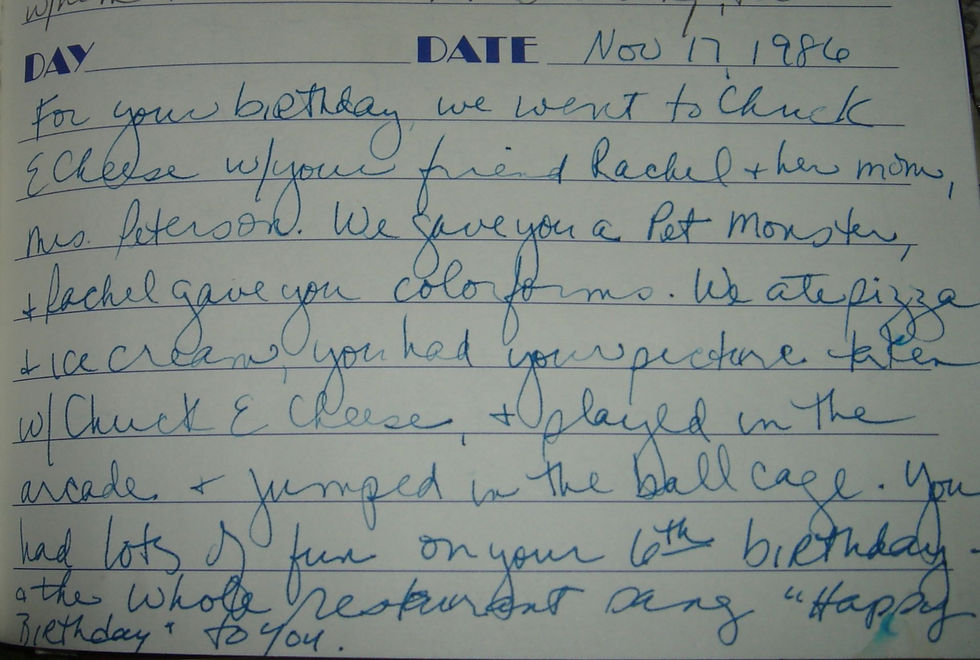 DAY DATE Nov 17, 1986
For your birthday, we went to Chuck
E Cheese w/your friend Rachel + her mom,
Mrs. Peterson. We gave you a Pet Monster,
+ Rachel gave you colorforms. We ate pizza
+ ice cream, you had your picture taken
w/ Chuck E Cheese, + played in the
arcade + jumped in the ball cage. You
had lots of fun on your 6th birthday -
the whole restaurant sang "Happy
Birthday" to you.